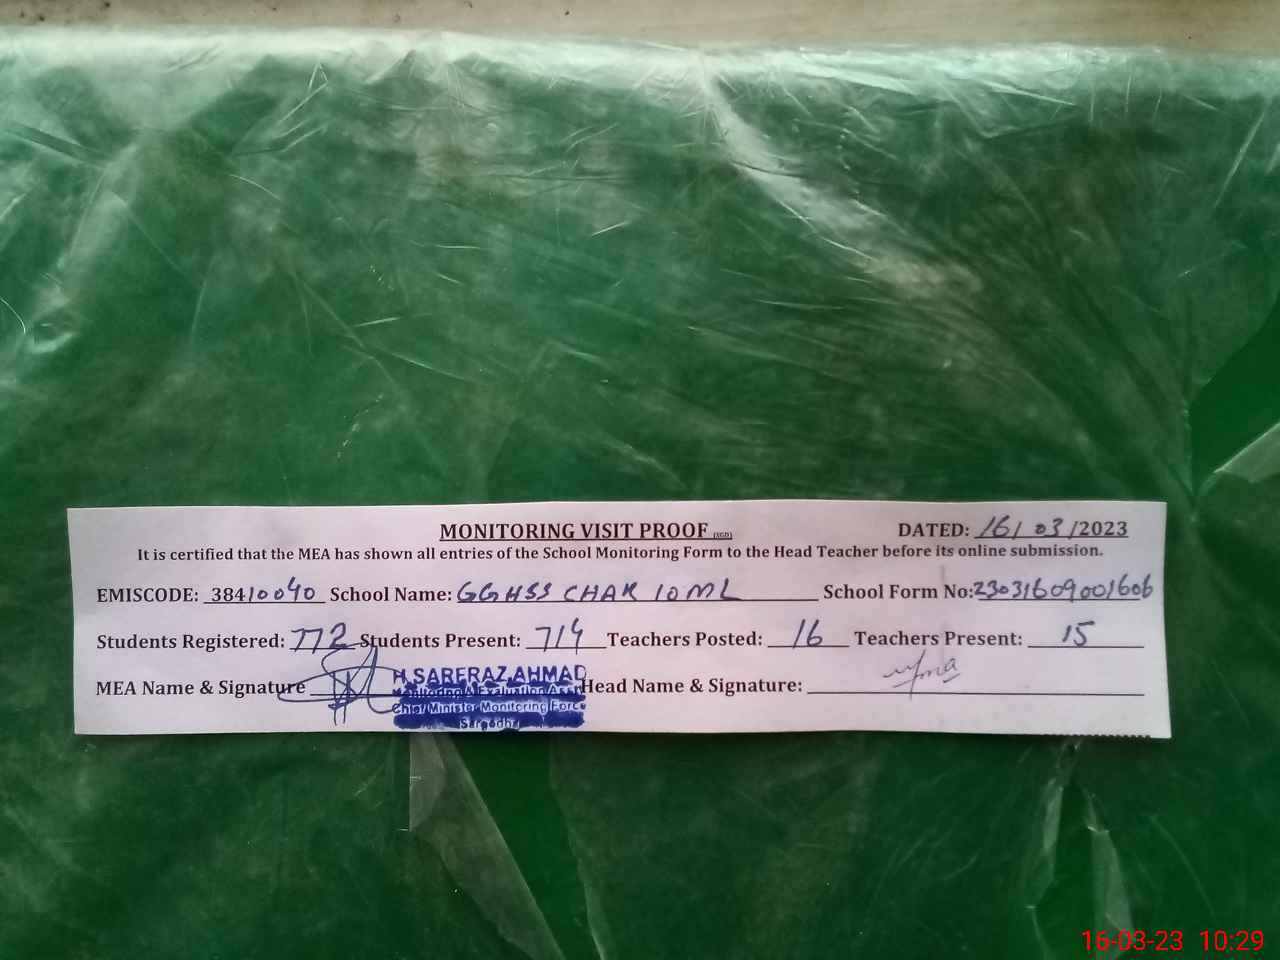 MONITORING VISIT PROOF (SGD) DATED: 16/03/2023
It is certified that the MEA has shown all entries of the School Monitoring Form to the Head Teacher before its online submission.
EMISCODE: 38410040 School Name: GGHSS CHAK 10 ML School Form No: 23031609001606
Students Registered: 772 Students Present: 714 Teachers Posted: 16 Teachers Present: 15
MEA Name & Signature Head Name & Signature:
H.SARFRAZ AHMAD
Monitoring & Evaluation Asst
Chief Minister Monitoring Force
Sargodha
16-03-23 10:29